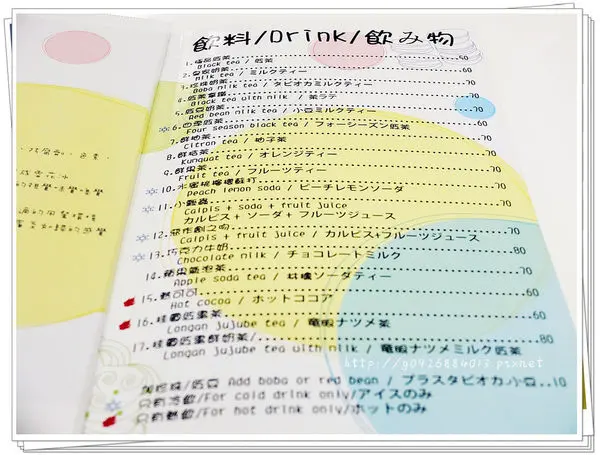 飲料/Drink/飲み物
1.極品紅茶 50
Black tea / 紅茶
2.皇家奶茶 60
Milk tea / ミルクティー
3.珍珠奶茶 70
Boba milk tea / タピオカミルクティー
4.紅茶拿鐵 70
Black tea with milk / 茶ラテ
5.紅豆奶茶 70
Red bean milk tea / 小豆ミルクティー
6.四季紅茶 60
Four season black tea / フォーシーズン紅茶
7.鮮柚茶 70
Citron tea / 柚子茶
8.鮮桔茶 70
Kunquat tea / オレンジティー
9.鮮果茶 70
Fruit tea / フルーツティー
10.水蜜桃檸檬蘇打 70
Peach lemon soda / ピーチレモンソーダ
11.小甄蟲 70
Calpis + soda + fruit juice
カルピス+ソーダ+フルーツジュース
12.惡作劇之吻 70
Calpis + fruit juice / カルピス+フルーツジュース
13.巧克力牛奶 80
Chocolate milk / チョコレートミルク
14.蘋果氣泡茶 70
Apple soda tea / ソーダティー
15.熱可可 60
Hot cocoa / ホットココア
16.桂圓紅棗茶 60
Longan jujube tea / 竜眼ナツメ茶
17.桂圓紅棗鮮奶茶/ 80
Longan jujube tea with milk / 竜眼ナツメミルク紅茶
加珍珠/紅豆 Add boba or red bean / プラスタピオカ.小豆 10
只有冷飲/For cold drink only/アイスのみ
只有熱飲/For hot drink only/ホットのみ